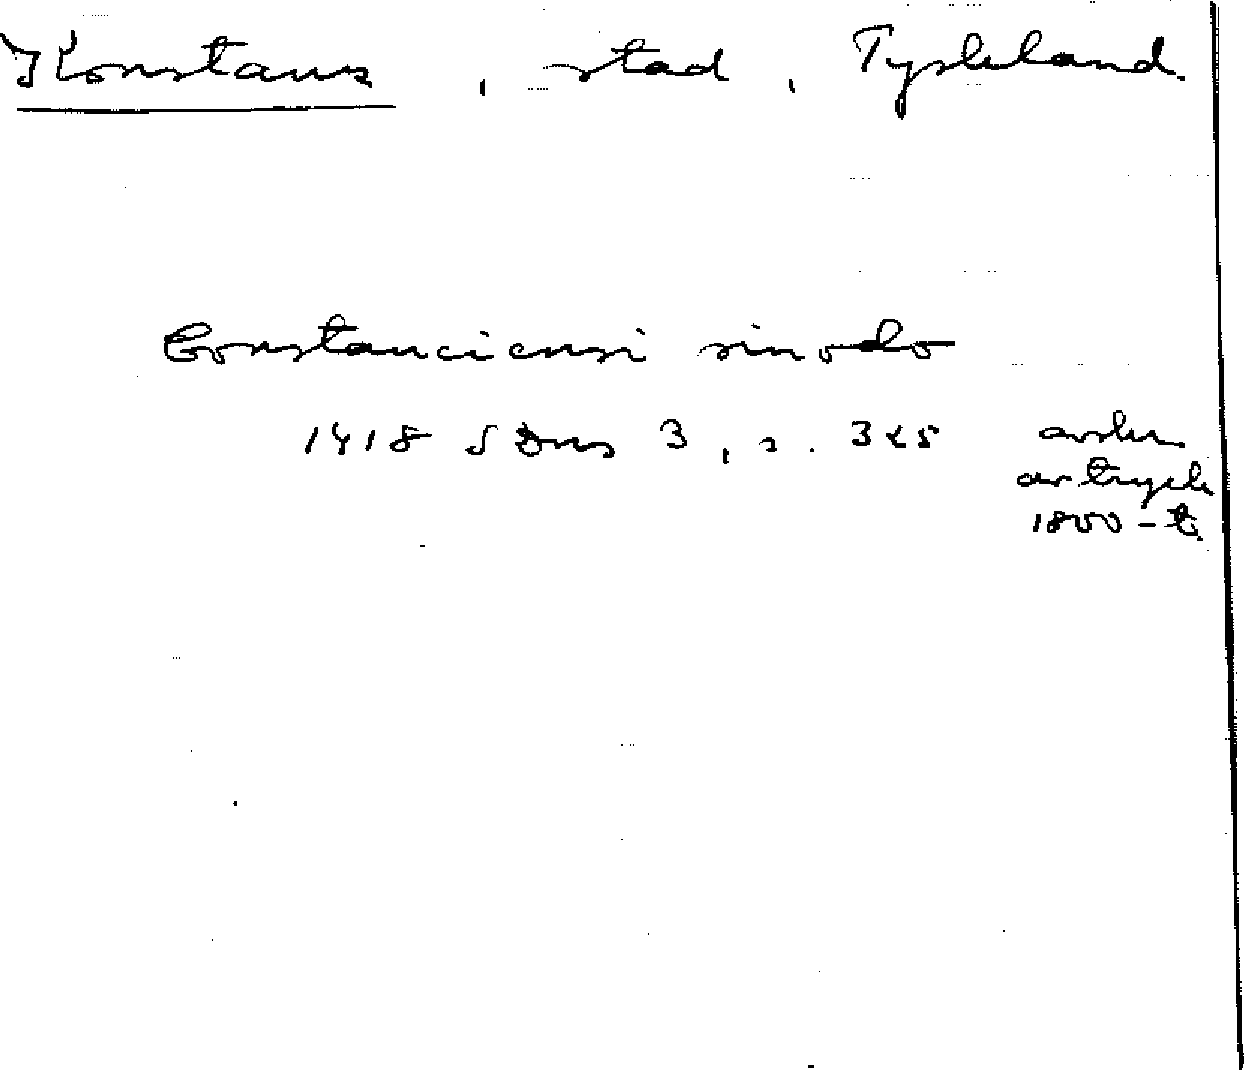 Konstans, stad, Tyskland.
Constanciensi sinodo
1418 SDns 3, s. 325 avskr
av tryck
1800-t.